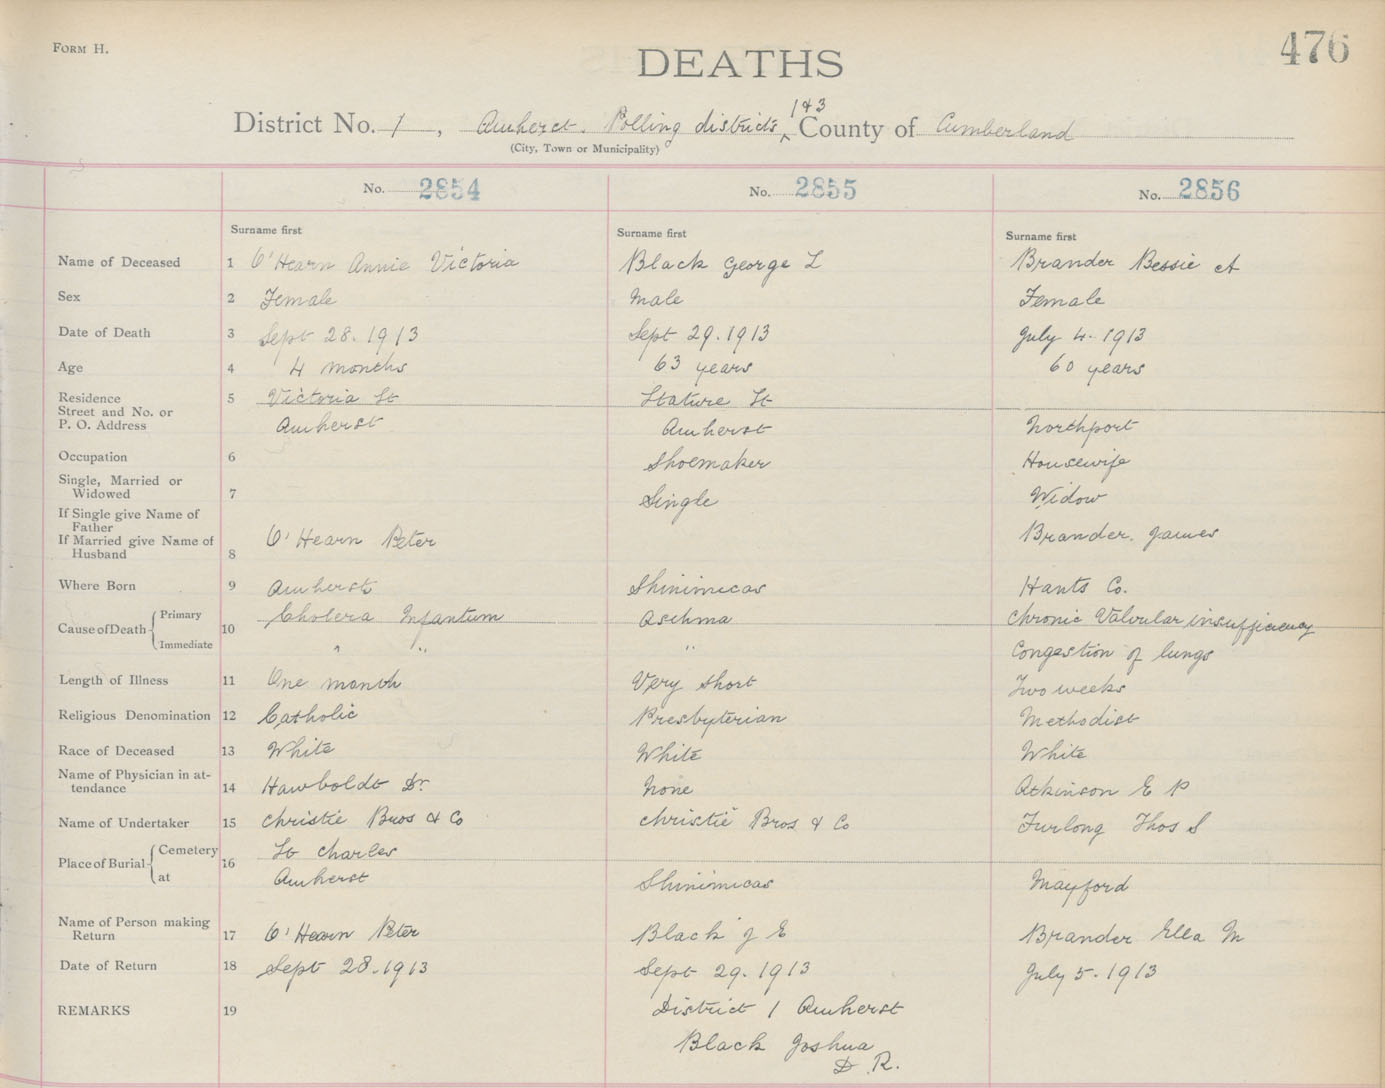 FORM H.
476
DEATHS
District No. 1, Amherst. Polling districts 1 & 3 County of Cumberland
(City, Town or Municipality)
No. 2854 No. 2855 No. 2856
Surname first Surname first Surname first
Name of Deceased 1 O'Hearn Annie Victoria Black George L Brander Bessie A
Sex 2 Female Male Female
Date of Death 3 Sept 28. 1913 Sept 29. 1913 July 4. 1913
Age 4 4 months 63 years 60 years
Residence 5 Victoria St Stature St
Street and No. or
P. O. Address Amherst Amherst Northport
Occupation 6 Shoemaker Housewife
Single, Married or
Widowed 7 Single Widow
If Single give Name of
Father
If Married give Name of
Husband 8 O'Hearn Peter Brander. James
Where Born 9 Amherst Shinimicas Hants Co.
Cause of Death Primary 10 Cholera Infantum Asthma Chronic Valvular insufficiency
Immediate " " " Congestion of lungs
Length of Illness 11 One month Very short Two weeks
Religious Denomination 12 Catholic Presbyterian Methodist
Race of Deceased 13 White White White
Name of Physician in at-
tendance 14 Hawboldt Dr. None Atkinson E P
Name of Undertaker 15 Christie Bros & Co Christie Bros & Co Furlong Thos S
Place of Burial Cemetery 16 St Charles
at Amherst Shinimicas Mayford
Name of Person making
Return 17 O'Hearn Peter Black J E Brander Ella M
Date of Return 18 Sept 28. 1913 Sept 29. 1913 July 5. 1913
REMARKS 19 District 1 Amherst
Black Joshua
D. R.